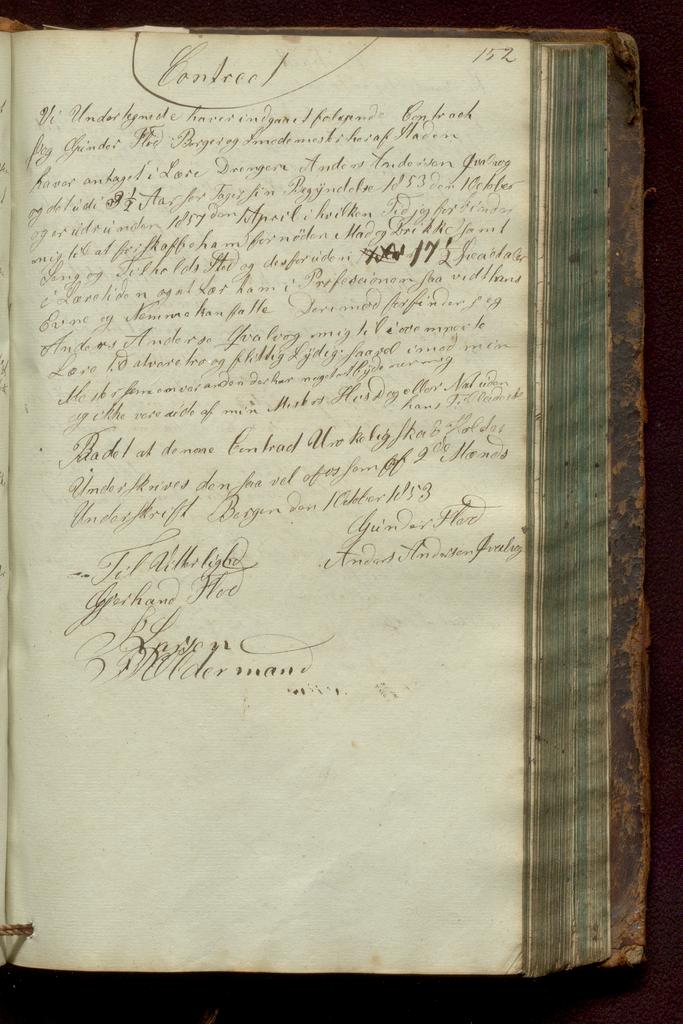 152
Contract
Vi Undertegnede haver indgaaet følgende Contrach
Jeg Gunder Flod Borger og Smedemester her af Staden
haver antaget i Lære Drengen Anders Andersen Qvalvog
og det udi 3½ Aar som Tager sin Begyndelse 1853 den 1 October
og er udrunden 1857 den 1 April i hvilken Tid jeg forbinder
mig til at forskaffe ham fornøden Mad og Drikke samt
Seng og Tilholds Sted og desforuden 17½ Specidaler
i Læretiden og at Lær ham i Professionen saa vidt hans
Evne og Nemme kan fatte Derimod forbinder jeg
Anders Anderse Qvalvog mig til i ovennævnte
Lære tid at være tro og flittig Lydig saavel imod min
Mester som enver anden der har noget at byde over mig
og ikke være ude af min Mesters Huus Dag eller Nat uden
hans Tilladelse
at denne Contract Urokkelig skal holdes
Underskrives den saa vel af os som af 2de Mænds
Underskrift Bergen den 1 October 1853
Gunder Flod
Anders Andersen Qvalvog
Til Vitterlighed
Gjerhard Flod
Larsen
Oldermand